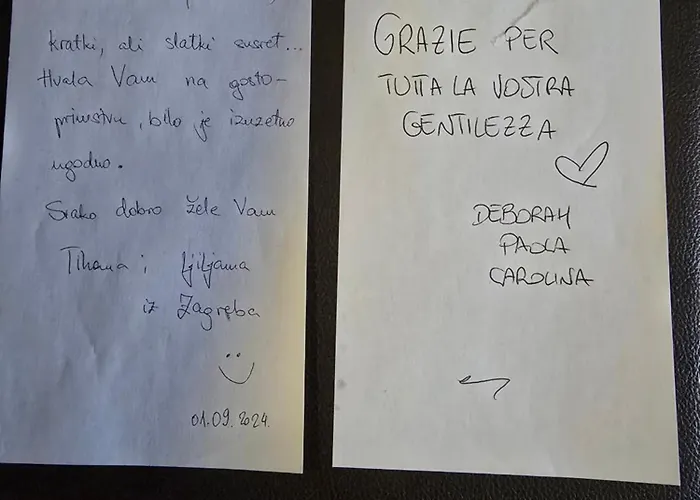 kratki, ali slatki susret...
Hvala Vam na gosto-
primstvu, bilo je izuzetno
ugodno.
Svako dobro žele Vam
Tihana i Ljiljana
iz Zagreba
01.09.2024.
GRAZIE PER
TUTTA LA VOSTRA
GENTILEZZA
DEBORAH
PAOLA
CAROLINA